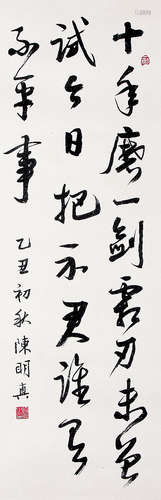 十年磨一劍霜刃未曾
試今日把示君誰為
不平事
乙丑初秋陳明真